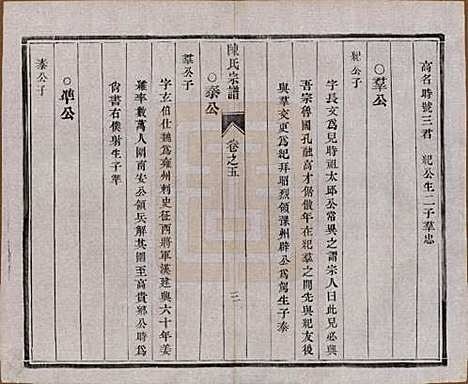 高名時號三君　紀公生二子羣忠
○羣公
紀公子
字長文公爲兒時祖太邱公常異之謂宗人曰此兒必興
吾宗魯國孔融高才倨傲年在紀羣之間先與紀友後
與羣交更爲紀拜昭烈領豫州辟公爲駕生子泰
陳氏宗譜　卷之五　三
○泰公
羣公子
字玄伯仕魏爲雍州刺史征西將軍漢建興六十年姜
維率數萬人圍南安公領兵解其圍至高貴鄉公時爲
尚書右僕射生子準
○準公
泰公子